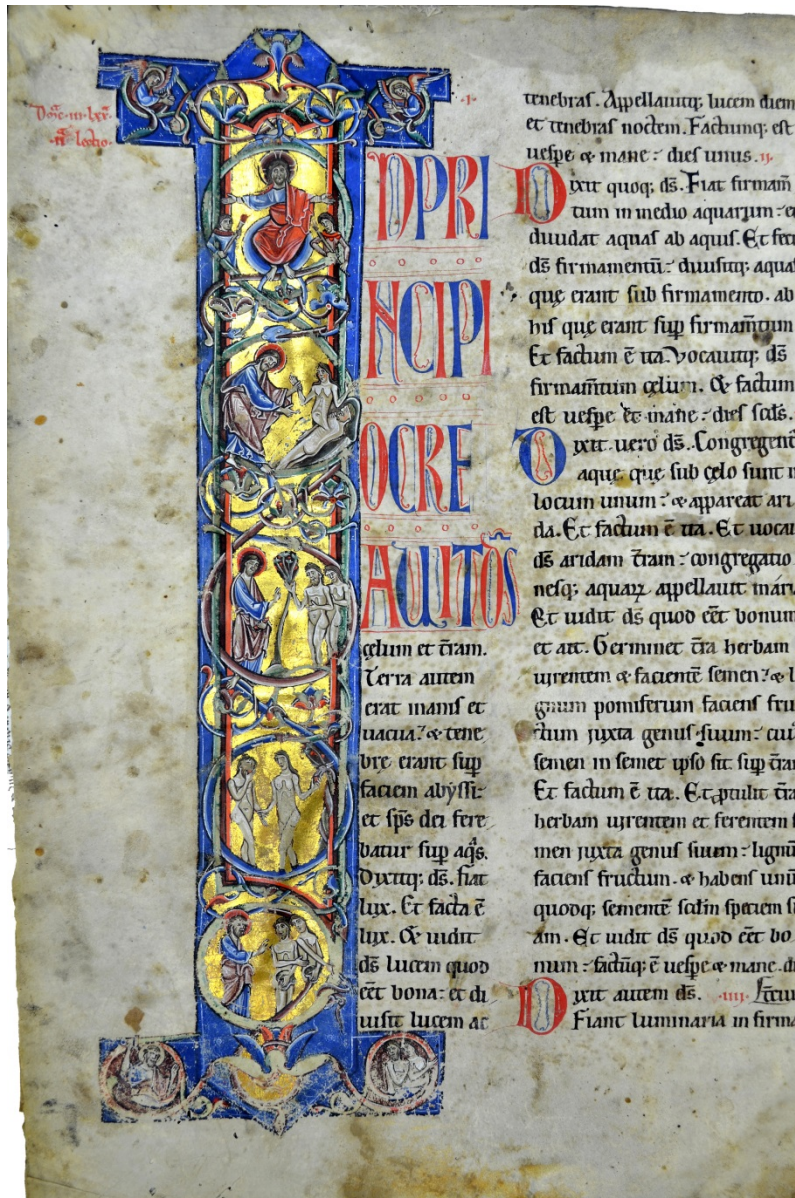 Do͞ic in lxx͞
·I·
I
NPRI
NCIPI
OCRE
AVITD͞S
cęlum et t͞ram.
Terra autem
erat inanis et
uacua: & tene
bre erant sup
faciem abyssi:
et sp͞s dei fere
batur sup aq͞s.
Dixitq; d͞s. fiat
lux. Et facta ē
lux. Et uidit
d͞s lucem quod
e͞et bona: et di
uisit lucem ac
tenebras. Appellauitq; lucem diem
et tenebras noctem. Factumq; est
uespe & mane: dies unus. ii.
Dixit quoq; d͞s. Fiat firmam̄
tum in medio aquarum: e
diuidat aquas ab aquis. Et feci
d͞s firmamentū: diuisitq; aquas
quę erant sub firmamento. ab
his que erant sup firmam̄tum
Et factum ē ita. Vocauitq; d͞s
firmam̄tum cęlum. & factum
est uespe et mane: dies sc͞ds.
Dixit uero d͞s. Congregent
aquę. quę sub cęlo sunt in
locum unum: & appareat ari
da. Et factum ē ita. Et uocau
d͞s aridam t͞ram: congregatio
nesq; aquaꝝ appellauit maria
Et uidit d͞s quod e͞et bonum
et ait. Germinet t͞ra herbam
uirentem & facientē semen: & li
gnum pomiferum faciens fru
ctum iuxta genus suum: cui
semen in semet ipso sit sup t͞ram
Et factum ē ita. Et ꝓtulit t͞ra
herbam uirentem et ferentem s
men iuxta genus suum: lignū
faciens fructum. & habens unū
quodq; sementē sc͞dm speciem s
am. Et uidit d͞s quod e͞et bo
num: factūq; ē uespe & mane. di
Dixit autem d͞s. ·iiii·
Fiant luminaria in firma